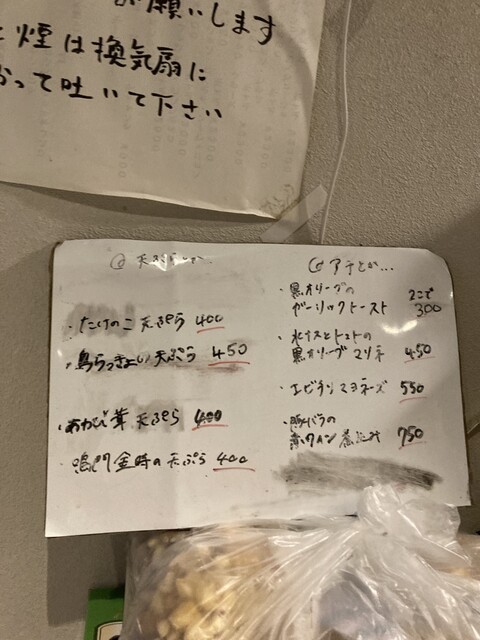 お願いします
煙は換気扇に
かって吐いて下さい
@ 天ぷらとか...
・たけのこ天ぷら 400
・島らっきょう天ぷら 450
・あわび茸天ぷら 400
・鳴門金時の天ぷら 400
@アテとか...
・黒オリーブの
ガーリックトースト 2こで 300
・水ナスとトマトの
黒オリーブマリネ 450
・エビチリマヨネーズ 550
・豚バラの
赤ワイン煮込み 750